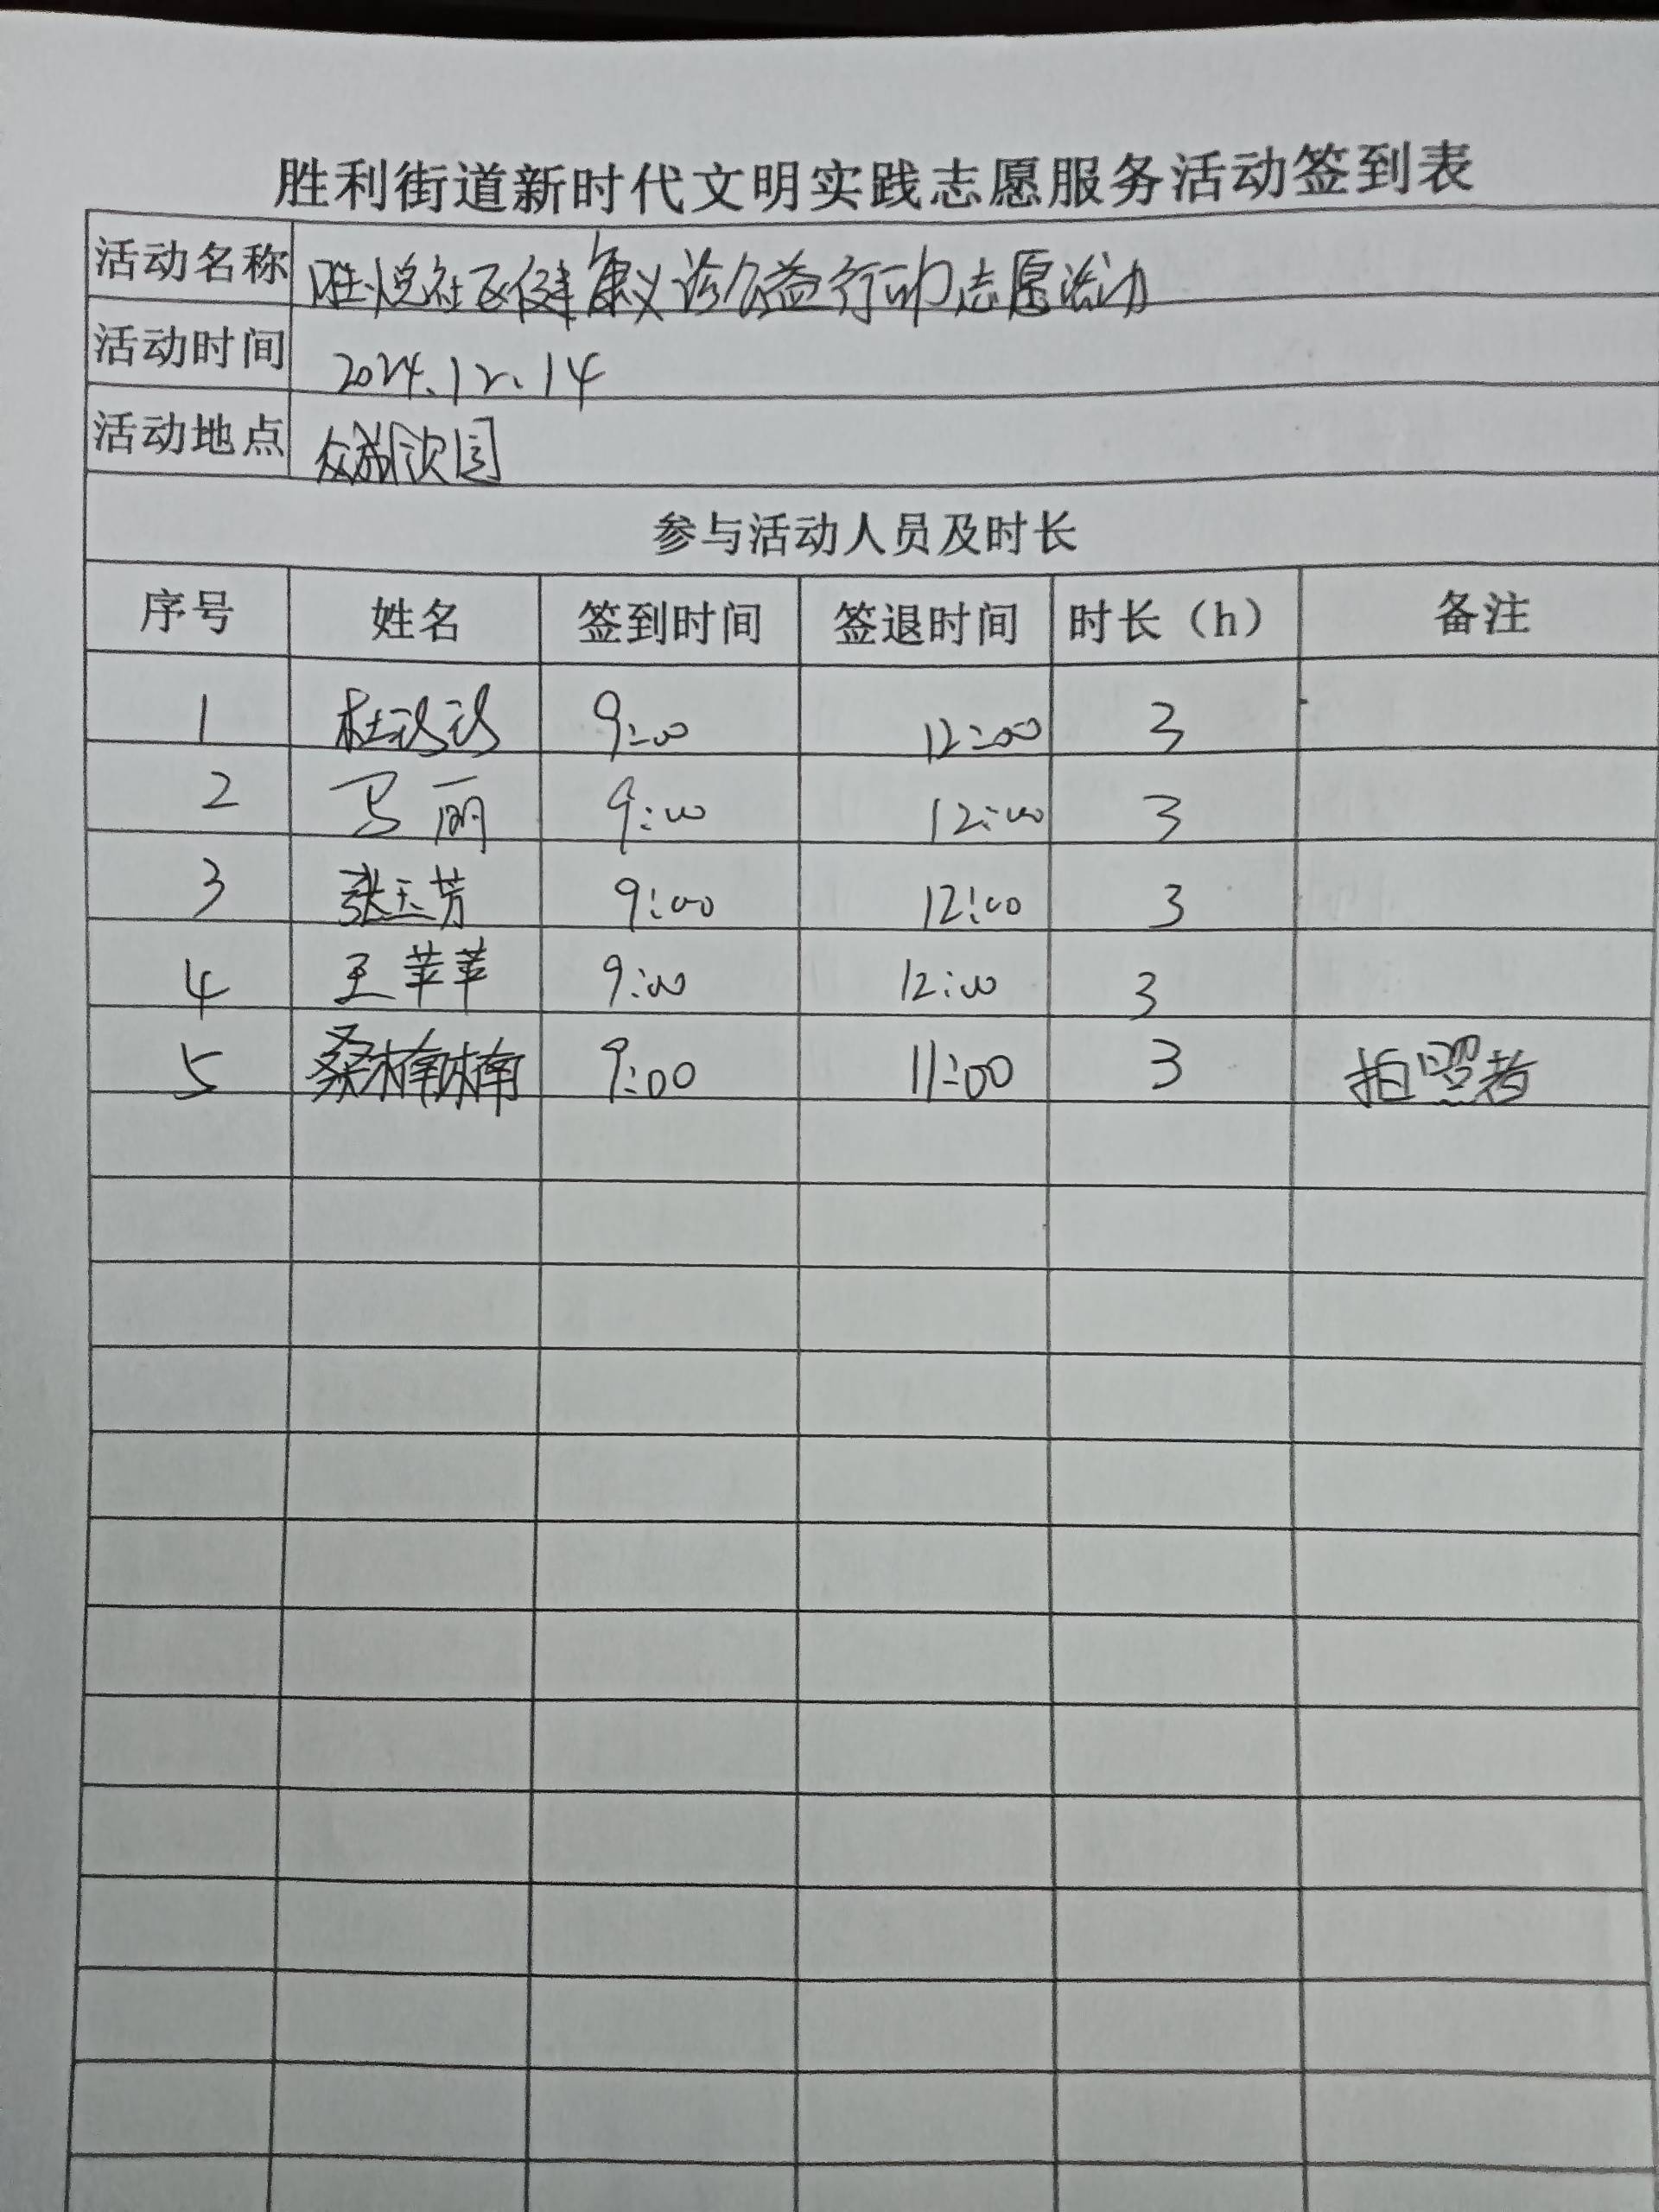 胜利街道新时代文明实践志愿服务活动签到表
活动名称 胜悦社区健康义诊公益行动志愿活动
活动时间 2024.12.14
活动地点 众成欣园
参与活动人员及时长
序号 姓名 签到时间 签退时间 时长（h） 备注
1 杜 9:00 12:00 3
2 马丽 9:00 12:00 3
3 张玉芳 9:00 12:00 3
4 王苹苹 9:00 12:00 3
5 桑楠楠 9:00 11:00 3 拍照者